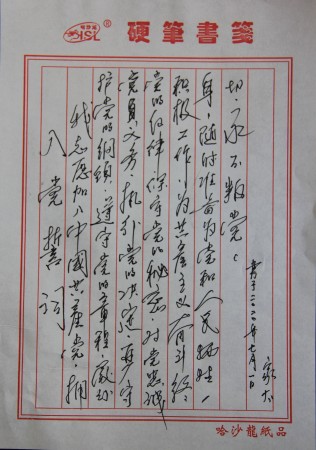 硬筆書箋
HSL
®
入党誓词
我志愿加入中國共產党·拥
护党的綱領·遵守党的章程·履行
党員义务·执行党的决定·严守
党的纪律·保守党的秘密·对党忠诚
积极工作·为共產主义奋斗终
身·随时准备为党和人民牺牲一
切·永不叛党
书于二〇二〇年七月一日
哈沙龍紙品